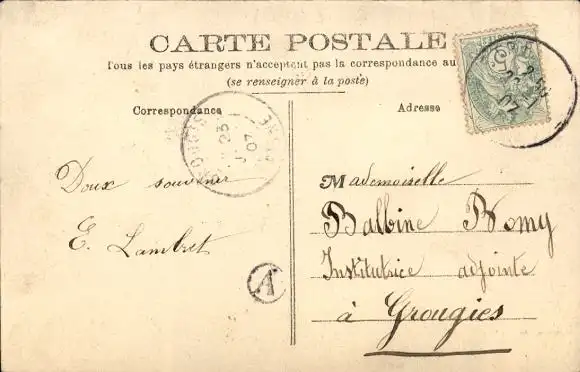 CARTE POSTALE
Tous les pays étrangers n'acceptent pas la correspondance au
(se renseigner à la poste)
Correspondance
Adresse
Doux souvenir
E. Lambret
Mademoiselle
Balbine Romy
Institutrice adjointe
à Grougies
A
23
07